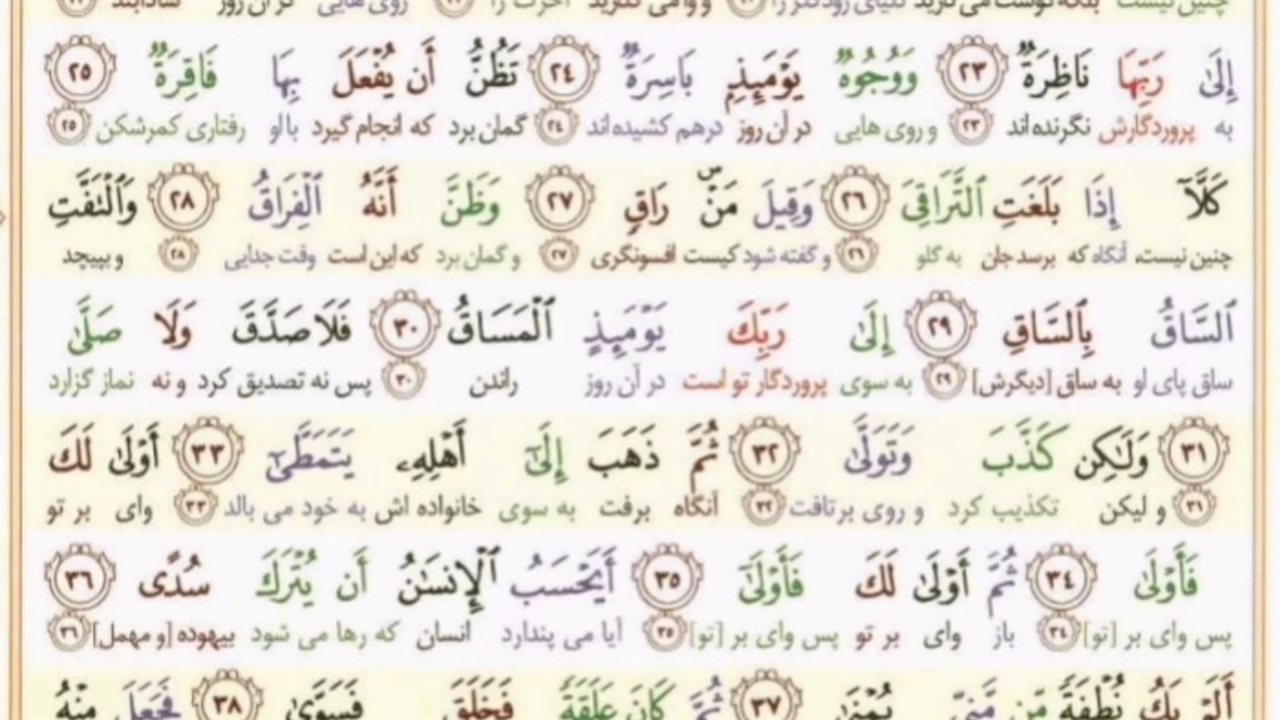 چنین نیست بلکه دوست می دارید دنیای زودگذر را و وا می گذارید آخرت را روی هایی در آن روز شادابند
إِلَىٰ رَبِّهَا نَاظِرَةٌ ٢٣ وَوُجُوهٌ يَوْمَئِذٍ بَاسِرَةٌ ٢٤ تَظُنُّ أَن يُفْعَلَ بِهَا فَاقِرَةٌ ٢٥
به پروردگارش نگرنده اند ۲۳ و روی هایی در آن روز درهم کشیده اند ۲۴ گمان برد که انجام گیرد با او رفتاری کمرشکن ۲۵
كَلَّآ إِذَا بَلَغَتِ ٱلتَّرَاقِيَ ٢٦ وَقِيلَ مَنْ ۜ رَاقٍ ٢٧ وَظَنَّ أَنَّهُ ٱلْفِرَاقُ ٢٨ وَٱلْتَفَّتِ
چنین نیست، آنگاه که برسد جان به گلو ۲۶ و گفته شود کیست افسونگری ۲۷ و گمان برد که این است وقت جدایی ۲۸ و بپیچد
ٱلسَّاقُ بِٱلسَّاقِ ٢٩ إِلَىٰ رَبِّكَ يَوْمَئِذٍ ٱلْمَسَاقُ ٣٠ فَلَا صَدَّقَ وَلَا صَلَّىٰ
ساق پای او به ساق [دیگرش] ۲۹ به سوی پروردگار تو است در آن روز راندن ۳۰ پس نه تصدیق کرد و نه نماز گزارد
٣١ وَلَـٰكِن كَذَّبَ وَتَوَلَّىٰ ٣٢ ثُمَّ ذَهَبَ إِلَىٰٓ أَهْلِهِۦ يَتَمَطَّىٰٓ ٣٣ أَوْلَىٰ لَكَ
۳۱ و لیکن تکذیب کرد و روی برتافت ۳۲ آنگاه برفت به سوی خانواده اش به خود می بالد ۳۳ وای بر تو
فَأَوْلَىٰ ٣٤ ثُمَّ أَوْلَىٰ لَكَ فَأَوْلَىٰٓ ٣٥ أَيَحْسَبُ ٱلْإِنسَـٰنُ أَن يُتْرَكَ سُدًى ٣٦
پس وای بر [تو] ۳۴ باز وای بر تو پس وای بر [تو] ۳۵ آیا می پندارد انسان که رها می شود بیهوده [و مهمل] ۳۶
أَلَمْ يَكُ نُطْفَةً مِّن مَّنِيٍّ يُمْنَىٰ ٣٧ ثُمَّ كَانَ عَلَقَةً فَخَلَقَ فَسَوَّىٰ ٣٨ فَجَعَلَ مِنْهُ